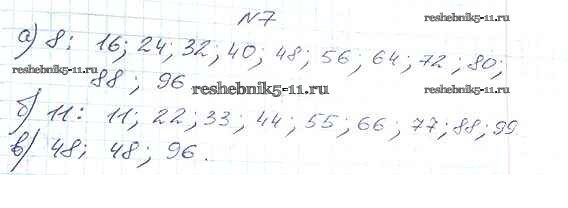 N7
reshebnik5-11.ru
а) 8: 16; 24; 32; 40; 48; 56; 64; 72; 80;
reshebnik5-11.ru
88; 96
reshebnik5-11.ru
б) 11: 11; 22; 33; 44; 55; 66; 77; 88; 99
в) 48; 48; 96.
reshebnik5-11.ru